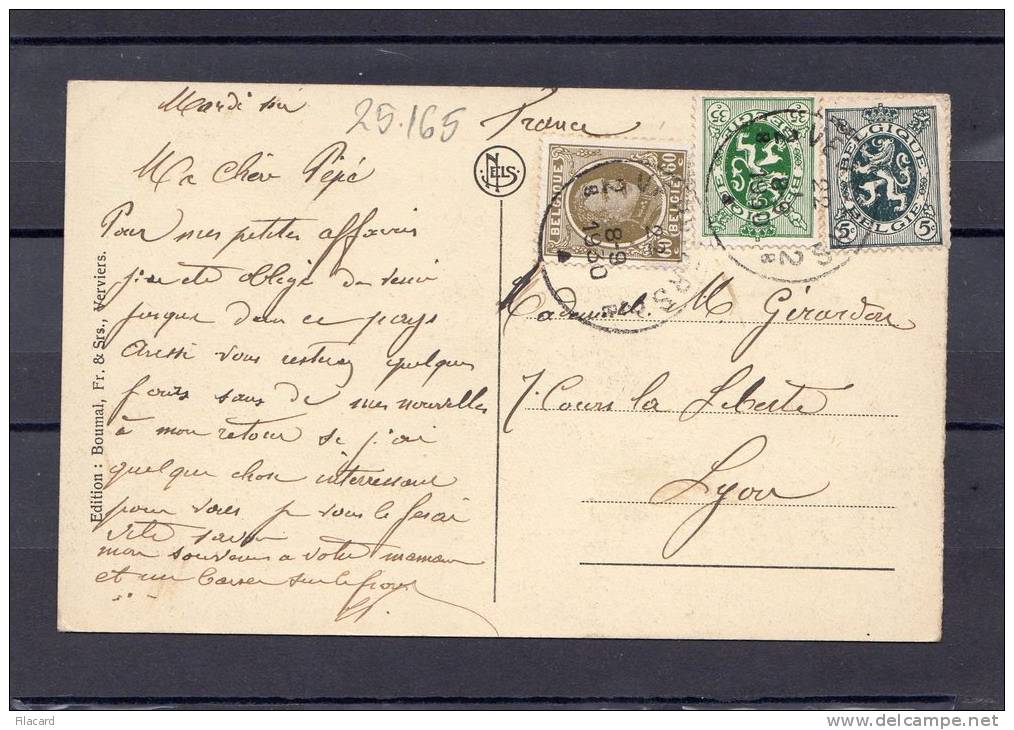 Mardi soir
25.165
France
Ma chère Pépé
Pour mes petites affaires
j'ai eté obligé de venir
jusque dans ce pays
Aussi vous resterez quelques
fois sans de mes nouvelles
à mon retour si j'ai
quelque chose interressant
pour vous je vous le ferai
vite savoir
mon souvenir a votre maman
et un baiser sur le front
Edition : Boumal, Fr. & Srs., Verviers.
NELS
BELGIQUE BELGIË 60c 60
35c 35c BELGIQUE BELGIË
BELGIQUE BELGIË 5c 5c
VERVIERS 2
8-9
1930
Mademoiselle M. Gérardon
7 Cours la Liberte
Lyon
Filacard
www.delcampe.net